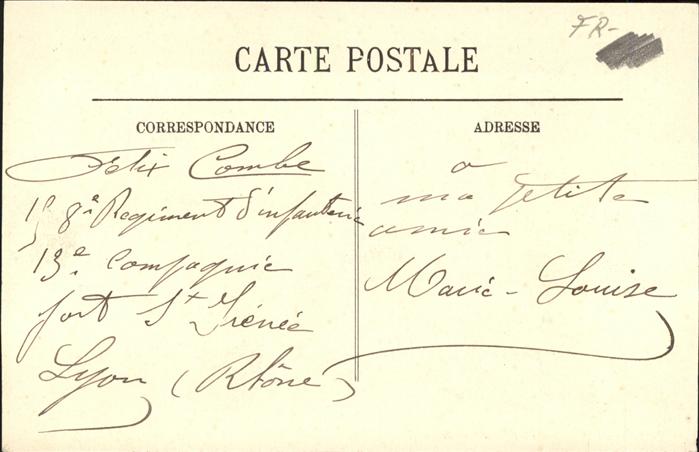 FR-
CARTE POSTALE
CORRESPONDANCE
Félix Combe
8e Regiment d'infanterie
13e Compagnie
fort St Irénée
Lyon (Rhône)
ADRESSE
a
ma petite
amie
Marie-Louise